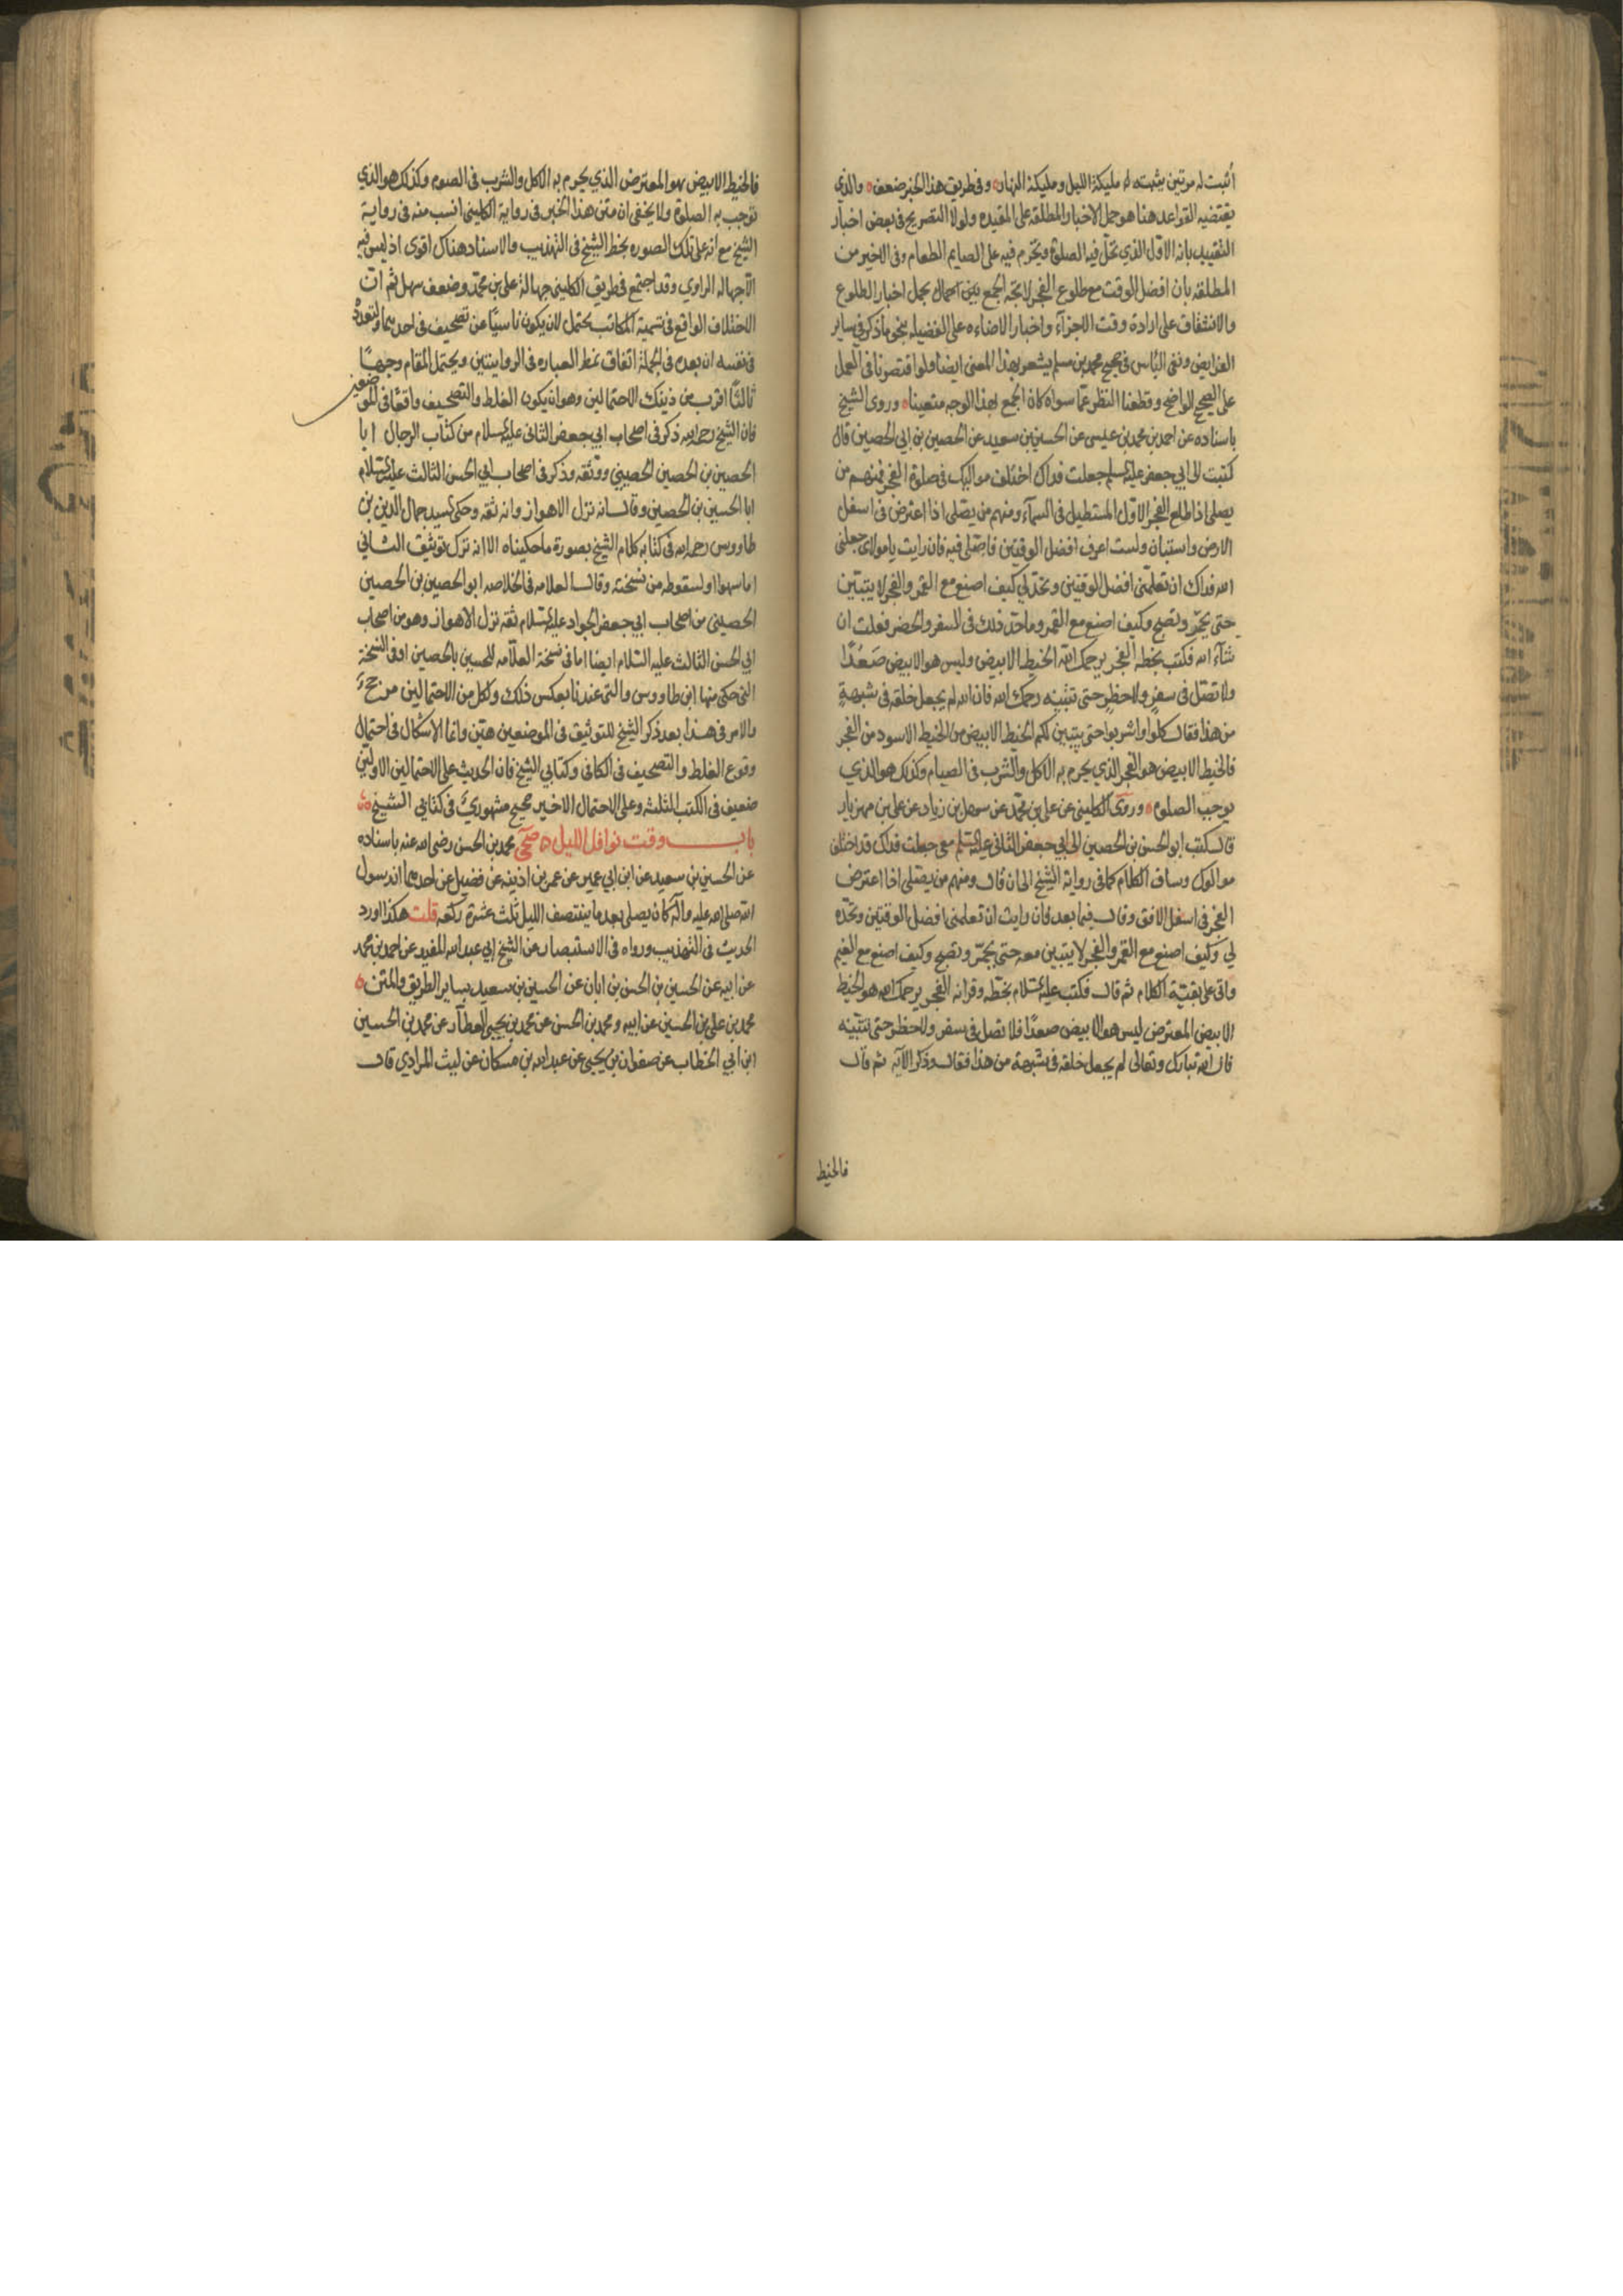 أثبت له مرتين يثبته له مليكة الليل ومليكة النهار ه وفى طريق هذا الخبر ضعف ه والذي
يقتضيه القواعد هنا هو حمل الاخبار المطلقه على المقيده ولولا التصريح فى بعض اخبار
التقييد بانه الاول الذي تحل فيه الصلوة ويحرم فيه على الصايم الطعام وفى الاخير من
المطلقه بأن افضل الوقت مع طلوع الفجر لاتجه الجمع بين احمال بحمل اخبار الطلوع
والانشقاق على ارادة وقت الاجزآء واخبار الاضاءه على الفضيله بنحو ماذكر فى ساير
الفرايض ونفى البأس فى صحيح محمد بن مسلم يشعر بهذا المعنى ايضا ولو اقتصرنا فى العمل
على الصحيح الواضح وقطعنا النظر عما سواه كان الجمع بهذا الوجه متعينا ه وروى الشيخ
باسناده عن احمد بن محمد بن عيسى عن الحسين بن سعيد عن الحصين بن ابي الحصين قال
كتبت الى ابي جعفر عليه السلم جعلت فداك اختلف مواليك فى صلوة الفجر فمنهم من
يصلى اذا طلع الفجر الاول المستطيل فى السمآء ومنهم من يصلى اذا اعترض فى اسفل
الارض واستبان ولست اعرف افضل الوقتين فاصلى فيه فان رايت يا مولاى جعلنى
الله فداك ان تعلمنى افضل الوقتين وتحد لى كيف اصنع مع القمر والفجر لا يتبين
حتى يحمر وتصبح وكيف اصنع مع القمر وما حد ذلك فى السفر والحضر فعلت ان
شآء الله فكتب بخطه الفجر يرحمك الله الخيط الابيض وليس هو الابيض صعدا
ولا تصل فى سفر ولا حظر حتى تتبينه رحمك الله فان الله لم يجعل خلقه فى شبهة
من هذا فقال كلوا واشربوا حتى يتبين لكم الخيط الابيض من الخيط الاسود من الفجر
فالخيط الابيض هو الفجر الذي يحرم به الاكل والشرب فى الصيام وكذلك هو الذي
يوجب الصلوه ه وروى الكلينى عن على بن محمد عن سهل بن زياد عن على بن مهزيار
قال كتب ابو الحسن بن الحصين الى ابي جعفر الثانى عليه السلم معى جعلت فداك قد اختلف
موالوك وساق الكلام كما فى رواية الشيخ الى ان قال ومنهم من يصلى اذا اعترض
الفجر فى اسفل الافق وقال فيما بعد فان رايت ان تعلمنى افضل الوقتين وتحده
لي وكيف اصنع مع القمر والفجر لا يتبين معه حتى يحمر وتصبح وكيف اصنع مع الغيم
واتى على بقية الكلام ثم قال فكتب عليه السلام بخطه وقراته الفجر يرحمك الله هو الخيط
الابيض المعترض ليس هو الابيض صعدا فلا تصل فى سفر ولا حظر حتى تتبينه
فان الله تبارك وتعالى لم يجعل خلقه فى شبهة من هذا فقال وذكر الآيه ثم قال
فالخيط
فالخيط الابيض هو المعترض الذي يحرم به الاكل والشرب فى الصوم وكذلك هو الذي
توجب به الصلوة ولا يخفى ان متن هذا الخبر فى رواية الكلينى انسب منه فى رواية
الشيخ مع انه على تلك الصوره بخط الشيخ فى التهذيب والاسناد هناك اقوى اذ ليس فيه
الا جهالة الراوي وقد اجتمع فى طريق الكلينى جهالة على بن محمد وضعف سهل ثم ان
الاختلاف الواقع فى تسمية المكاتب يحتمل لان يكون ناسيا عن تصحيف فى احديهما والتعدد
فى نفسه ان بعده فى الجملة اتفاق نمط العباره فى الروايتين ويحتمل المقام وجها
ثالثا اقرب من ذينك الاحتمالين وهو ان يكون الغلط والتصحيف واقعا فى الموضعين
فان الشيخ رحمه الله ذكر فى اصحاب ابي جعفر الثانى عليه السلام من كتاب الرجال ابا
الحصين بن الحصين الحصيني ووثقه وذكر فى اصحاب ابي الحسن الثالث عليه السلام
ابا الحسين بن الحصين وقال انه نزل الاهواز وانه ثقه وحكى السيد جمال الدين بن
طاووس رحمه الله فى كتابه كلام الشيخ بصورة ما حكيناه الا انه ترك توثيق الثانى
اما سهوا او لسقوطه من نسخته وقال العلامه فى الخلاصه ابو الحصين بن الحصين
الحصينى من اصحاب ابي جعفر الجواد عليه السلام ثقه نزل الاهواز وهو من اصحاب
ابي الحسن الثالث عليه السلام ايضا اما فى نسخة العلامه للحسين بالحصين او فى النسخة
التى حكى منها ابن طاووس والتى عندنا بعكس ذلك ولكل من الاحتمالين مرجح
والامر فى هذا بعد ذكر الشيخ للتوثيق فى الموضعين هين وانما الاشكال فى احتمال
وقوع الغلط والتصحيف فى الكافى وكتابي الشيخ فان الحديث على الاحتمالين الاولين
ضعيف فى الكتب الثلثه وعلى الاحتمال الاخير صحيح مشهوري فى كتابي الشيخ ه
باب وقت نوافل الليل ه صحى محمد بن الحسن رضى الله عنه باسناده
عن الحسين بن سعيد عن ابن ابي عمير عن عمر بن اذينه عن فضيل عن احدهما ان رسول
الله صلى الله عليه وآله كان يصلى بعد ما ينتصف الليل ثلث عشرة ركعه قلت هكذا اورد
الحديث فى التهذيب ورواه فى الاستبصار عن الشيخ ابي عبد الله المفيد عن احمد بن محمد
عن ابيه عن الحسين بن الحسن بن ابان عن الحسين بن سعيد بساير الطريق والمتن ه
محمد بن على بن الحسين عن ابيه ومحمد بن الحسن عن محمد بن يحيى العطار عن محمد بن الحسين
ابن ابي الخطاب عن صفوان بن يحيى عن عبد الله بن مسكان عن ليث المرادي قال